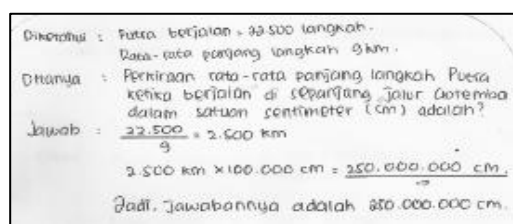 Diketahui : Putra berjalan = 22.500 langkah.
Rata-rata panjang langkah 9km.
Ditanya : Perkiraan rata-rata panjang langkah Putra
ketika berjalan di sepanjang jalur Gotemba
dalam satuan sentimeter (cm) adalah?
Jawab : 22.500 / 9 = 2.500 km
2.500 km × 100.000 cm = 250.000.000 cm.
Jadi, Jawabannya adalah 250.000.000 cm.